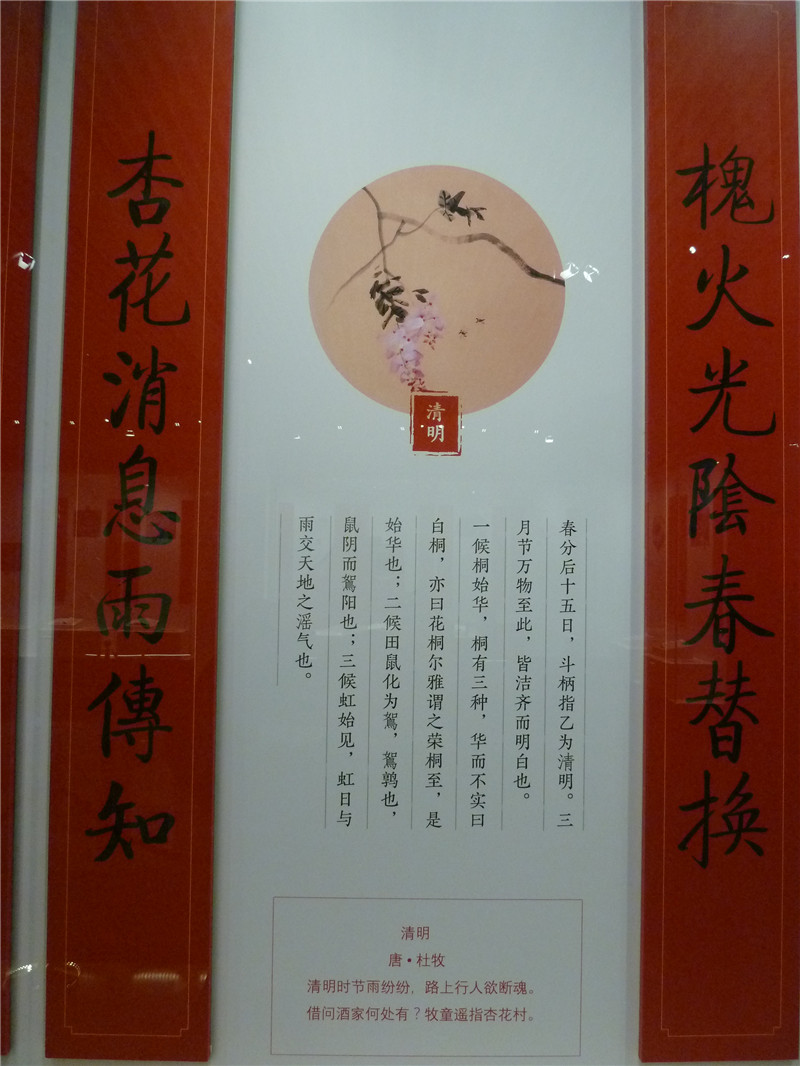 槐火光陰春替换
杏花消息雨傳知
清明
春分后十五日，斗柄指乙为清明。三
月节万物至此，皆洁齐而明白也。
一候桐始华，桐有三种，华而不实曰
白桐，亦曰花桐尔雅谓之荣桐至，是
始华也；二候田鼠化为鴽，鴽鹑也，
鼠阴而鴽阳也；三候虹始见，虹日与
雨交天地之淫气也。
清明
唐·杜牧
清明时节雨纷纷，路上行人欲断魂。
借问酒家何处有？牧童遥指杏花村。